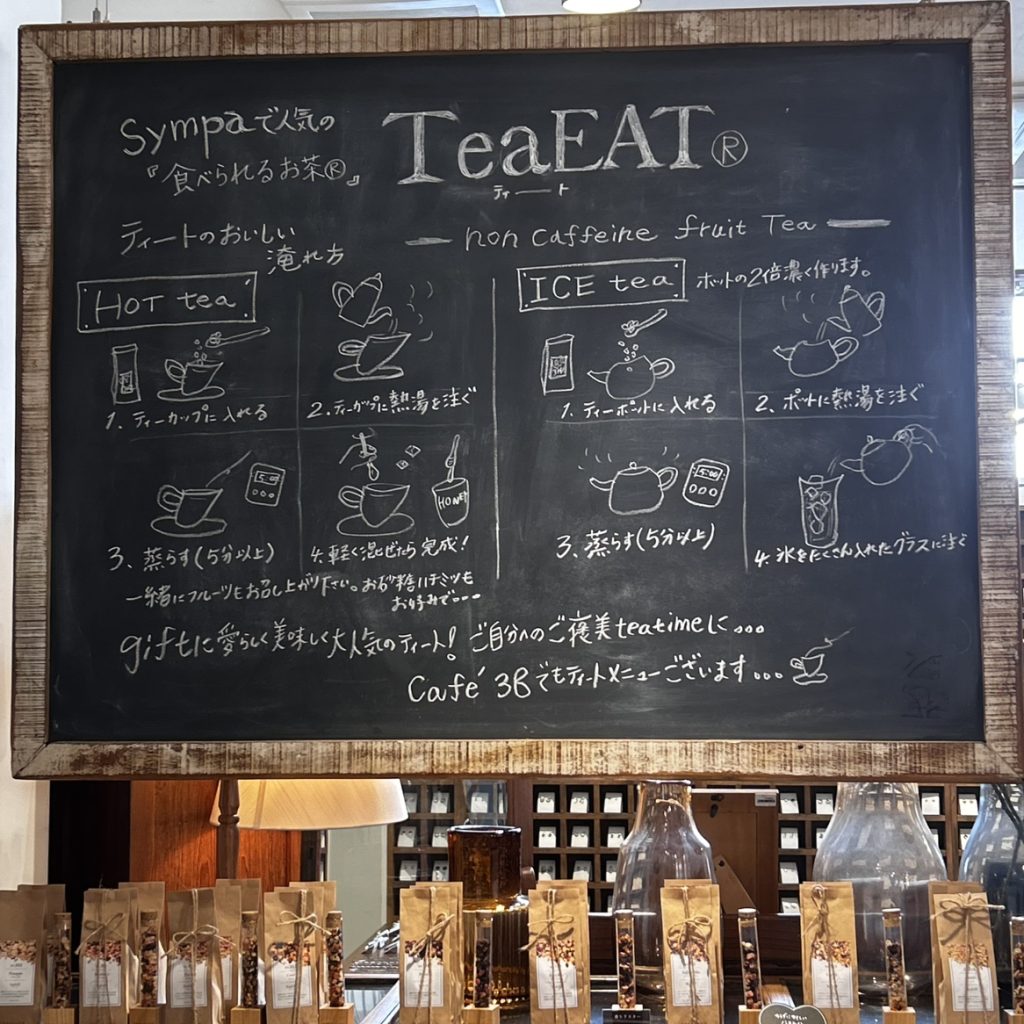 Sympaで人気の
『食べられるお茶®』
TeaEAT®
ティート
ティートのおいしい
淹れ方
non caffeine fruit Tea
HOT tea
1. ティーカップに入れる
2. ティーカップに熱湯を注ぐ
5:00
HONEY
3. 蒸らす(5分以上)
4. 軽く混ぜたら完成!
一緒にフルーツもお召し上がり下さい。お砂糖ハチミツも
お好みで...
ICE tea
ホットの2倍濃く作ります。
1. ティーポットに入れる
2. ポットに熱湯を注ぐ
5:00
3. 蒸らす(5分以上)
4. 氷をたくさん入れたグラスに注ぐ
giftに愛らしく美味しく大人気のティート! ご自分へのご褒美teatimeに...
Café 3Bでもティートメニューございます...